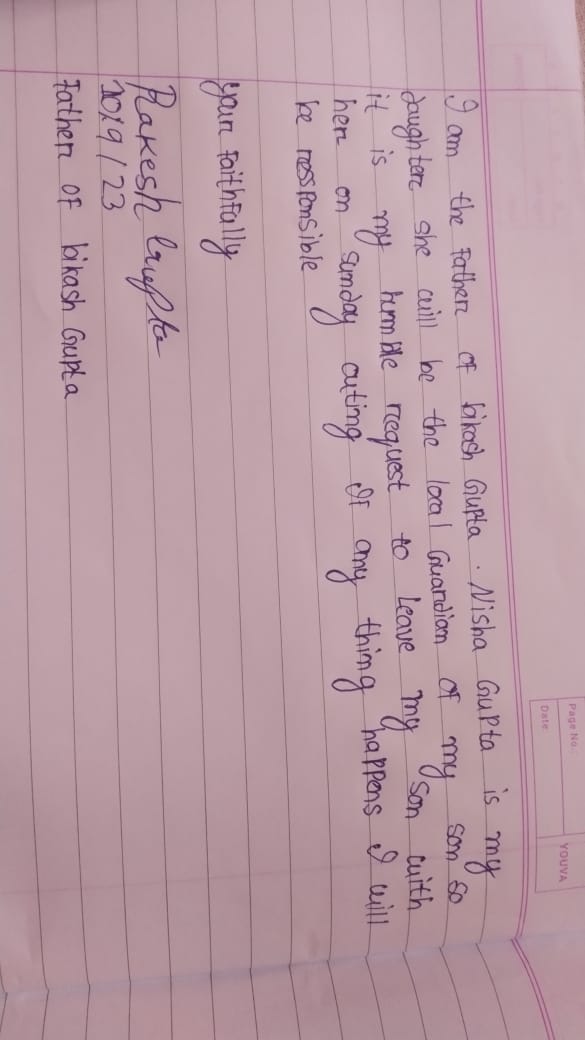 Page No.:
Date
YOUVA
I am the Father of bikash Gupta. Nisha Gupta is my
daughter she will be the local Guardian of my son so
it is my humble request to leave my son with
her on sunday outing If any thing happens I will
be ressponsible
your Faithfully
Rakesh Gupta
10/9/23
Father of bikash Gupta